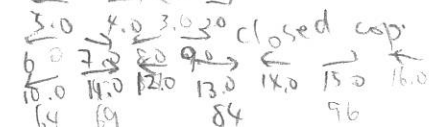 3.0 4.0 3.0 30 closed cop.
6 0 7.0 8.0 9.0
10.0 11.0 12.0 13.0 14.0 15.0 16.0
64 69 84 96